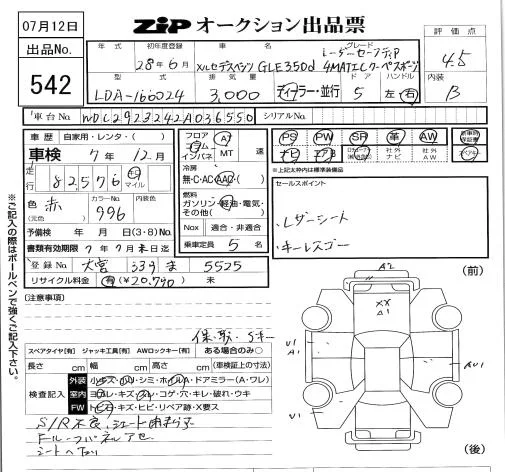 07月12日
出品No.
542
ZIP オークション出品票
年式 初年度登録 車名 グレード
28年6月 メルセデスベンツ GLE350d レーダーセーフティP 4MATICクーペスポーツ
型式 排気量 ドア ハンドル
LDA-166024 3,000 ディーラー・並行 5 左・右
評価点
4.5
内装
B
車台No. WDC2923242A036550 シリアルNo.
車歴 自家用・レンタ・( )
車検 7年12月
走行 82576 km マイル
色 赤 (元色) カラーNo. 996 内装色
予備検 年 月 日 (3・8) No.
書類有効期限 7年7月末日迄
登録No. 大宮 339 ま 5525
リサイクル料金 有 (¥20,790) 未
フロア コラム インパネ AT MT 速
冷房 無・C・AC・AAC・( )
燃料 ガソリン・軽油・電気・その他( )
Nox 適合・非適合
乗車定員 5 名
PS PW SR 革 AW 新車時保証書
ナビ エアB 社外ナビ 社外AW
※上記太枠内は標準装備品
セールスポイント
・レザーシート
・キーレスゴー
※ご記入の際はボールペンで強くご記入下さい。
(注意事項)
スペアタイヤ[有] ジャッキ工具[有] AWロックキー[有] ある場合のみ○
長さ cm 幅 cm 高さ cm (車検証上の寸法)
検査記入
外装
室内
FW トビ・キズ・ヒビ・リペア跡・X要ス
(前)
A2
XX
A1
U1
A1
AU1
U1
U1
(後)